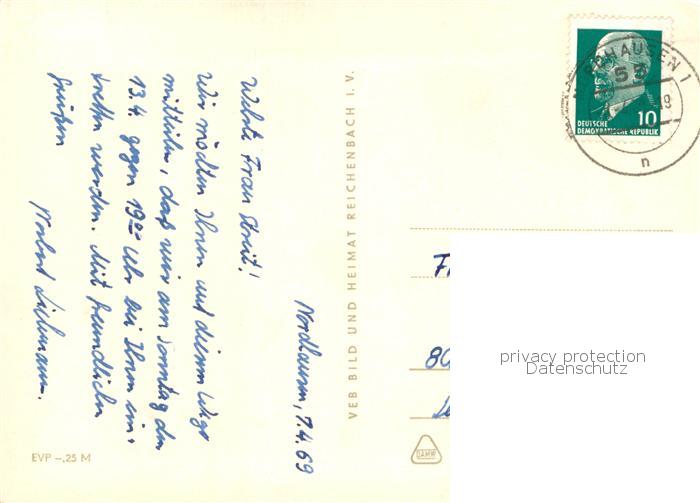 Nordhausen, 7.4.69
Werte Frau Streit!
Wir möchten Ihnen auf diesem Wege
mitteilen, daß wir am Sonntag den
13.4. gegen 19⁰⁰ Uhr bei Ihnen ein-
treffen werden. Mit freundlichen
Grüßen
Norbert
EVP -,25 M
VEB BILD UND HEIMAT REICHENBACH I. V.
55
10
DEUTSCHE
DEMOKRATISCHE REPUBLIK
n
80
DAMW
privacy protection
Datenschutz